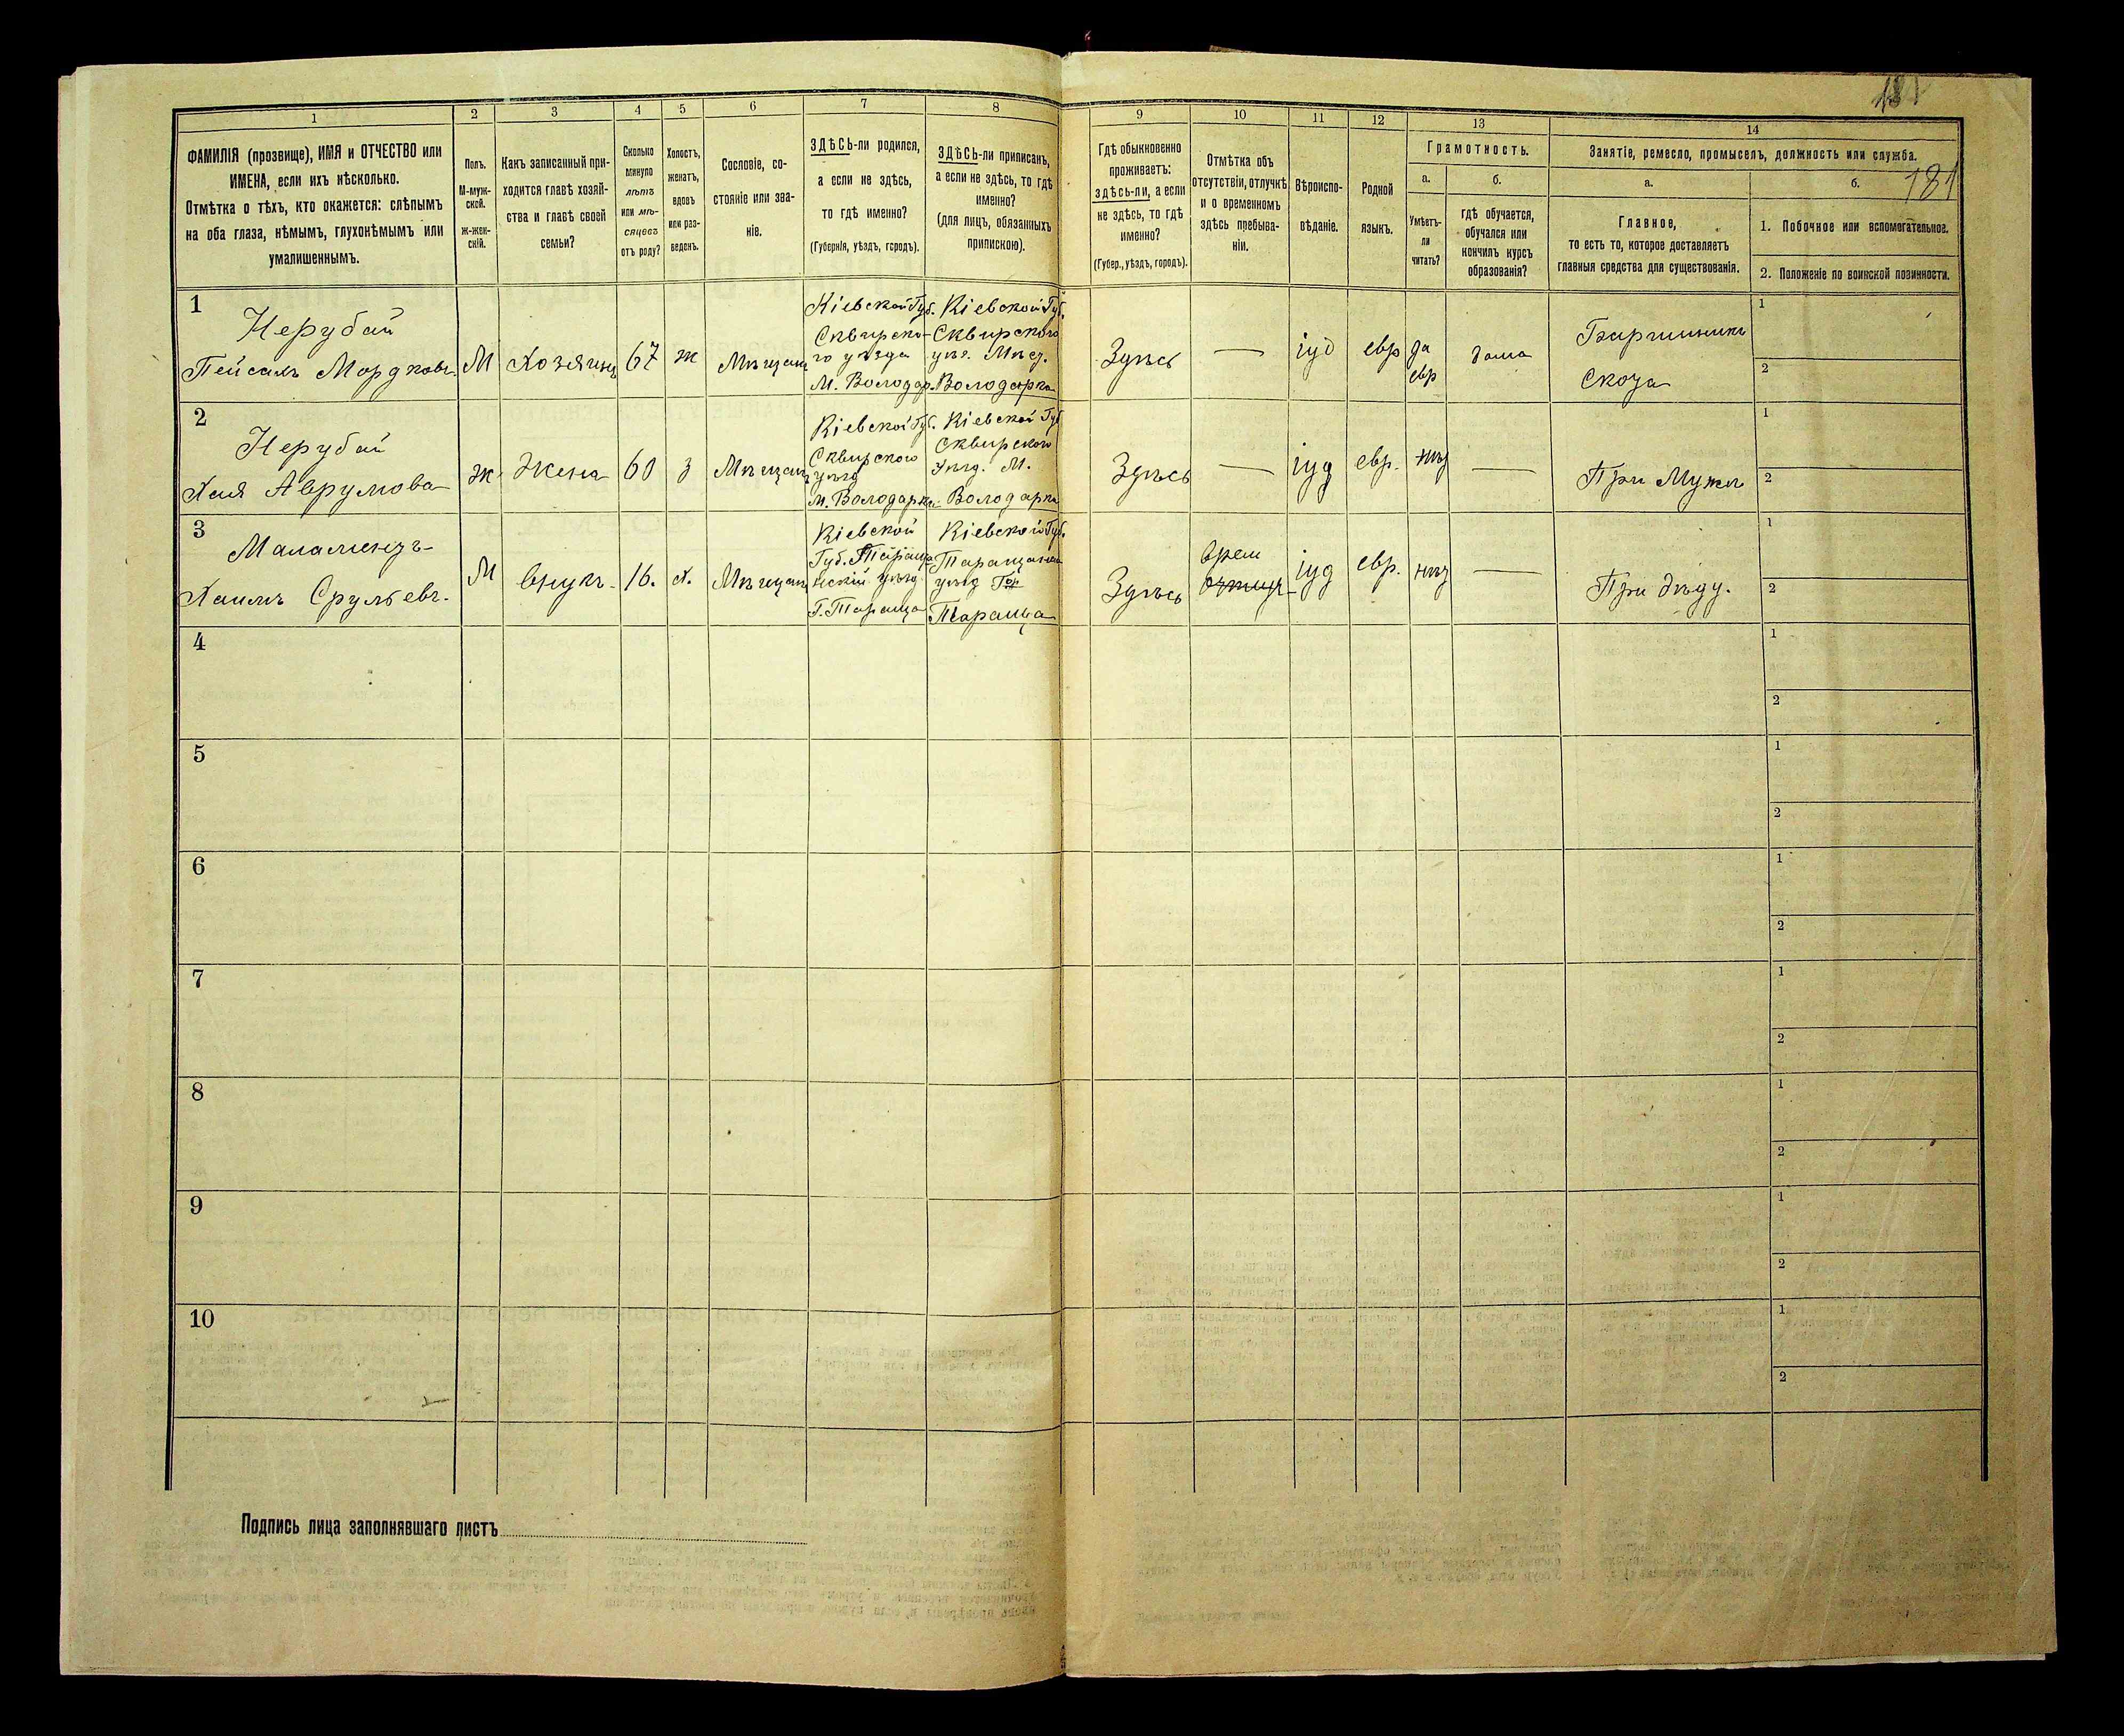 181
181
1
2
3
4
5
6
7
8
9
10
11
12
13
14
ФАМИЛІЯ (прозвище), ИМЯ и ОТЧЕСТВО или
ИМЕНА, если ихъ нѣсколько.
Отмѣтка о тѣхъ, кто окажется: слѣпымъ
на оба глаза, нѣмымъ, глухонѣмымъ или
умалишеннымъ.
Полъ.
М-муж-
ской.
ж-жен-
скій.
Какъ записанный при-
ходится главѣ хозяй-
ства и главѣ своей
семьи?
Сколько
минуло
лѣтъ
или мѣ-
сяцевъ
отъ роду?
Холостъ,
женатъ,
вдовъ
или раз-
веденъ.
Сословіе, со-
стояніе или зва-
ніе.
ЗДѢСЬ-ли родился,
а если не здѣсь,
то гдѣ именно?
(Губернія, уѣздъ, городъ).
ЗДѢСЬ-ли приписанъ,
а если не здѣсь, то гдѣ
именно?
(для лицъ, обязанныхъ
припискою).
Гдѣ обыкновенно
проживаетъ:
здѣсь-ли, а если
не здѣсь, то гдѣ
именно?
(Губер., уѣздъ, городъ).
Отмѣтка объ
отсутствіи, отлучкѣ
и о временномъ
здѣсь пребыва-
ніи.
Вѣроиспо-
вѣданіе.
Родной
языкъ.
Грамотность.
а.
Умѣетъ-
ли
читать?
б.
гдѣ обучается,
обучался или
кончилъ курсъ
образованія?
Занятіе, ремесло, промыселъ, должность или служба.
а.
Главное,
то есть то, которое доставляетъ
главныя средства для существованія.
б.
1. Побочное или вспомогательное.
2. Положеніе по воинской повинности.
1
Нерубай
Пейсахъ Мордков.
М
Хозяинъ
67
ж
Мѣщан
Кіевской Губ.
Сквирско-
го уѣзда
М. Володар.
Кіевской Губ.
Сквирского
уѣз. Мѣст.
Володарка
Здѣсь
—
іуд
евр
да
евр
дома
Скота
1
2
2
Нерубай
Хая Аврумова
ж
Жена
60
З
Мѣщан
Кіевской Губ.
Сквирского
уѣзд
М. Володарка
Кіевской Губ
Сквирского
Уѣзд. М.
Володарка
Здѣсь
—
іуд
евр.
нѣт
—
При Мужѣ
1
2
3
Маламендъ
Хаимъ Срульевъ.
М
внукъ
16.
х.
Мѣщан
Кіевской
Губ. Тараща-
нскій уѣзд
Г. Тараща
Кіевской Губ.
Таращанск
уѣзд Гор
Тараща
Здѣсь
врем
іуд
евр.
нѣт
—
При дѣду.
1
2
4
1
2
5
1
2
6
1
2
7
1
2
8
1
2
9
1
2
10
1
2
Подпись лица заполнявшаго листъ